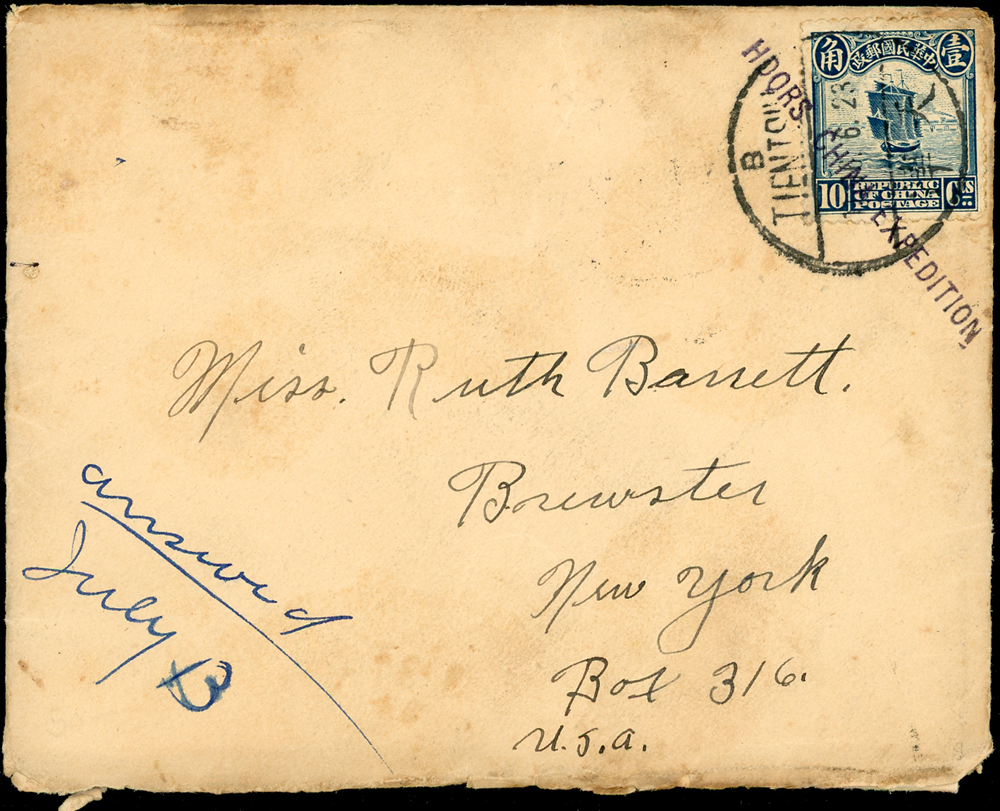 角 中華民國郵政 壹
10 REPUBLIC OF CHINA POSTAGE CTS
B
TIENTSIN
6. 23
HDQRS. CHINA EXPEDITION,
Miss. Ruth Barrett.
Brewster
New York
Box 316.
U.S.A.
answered
July 13